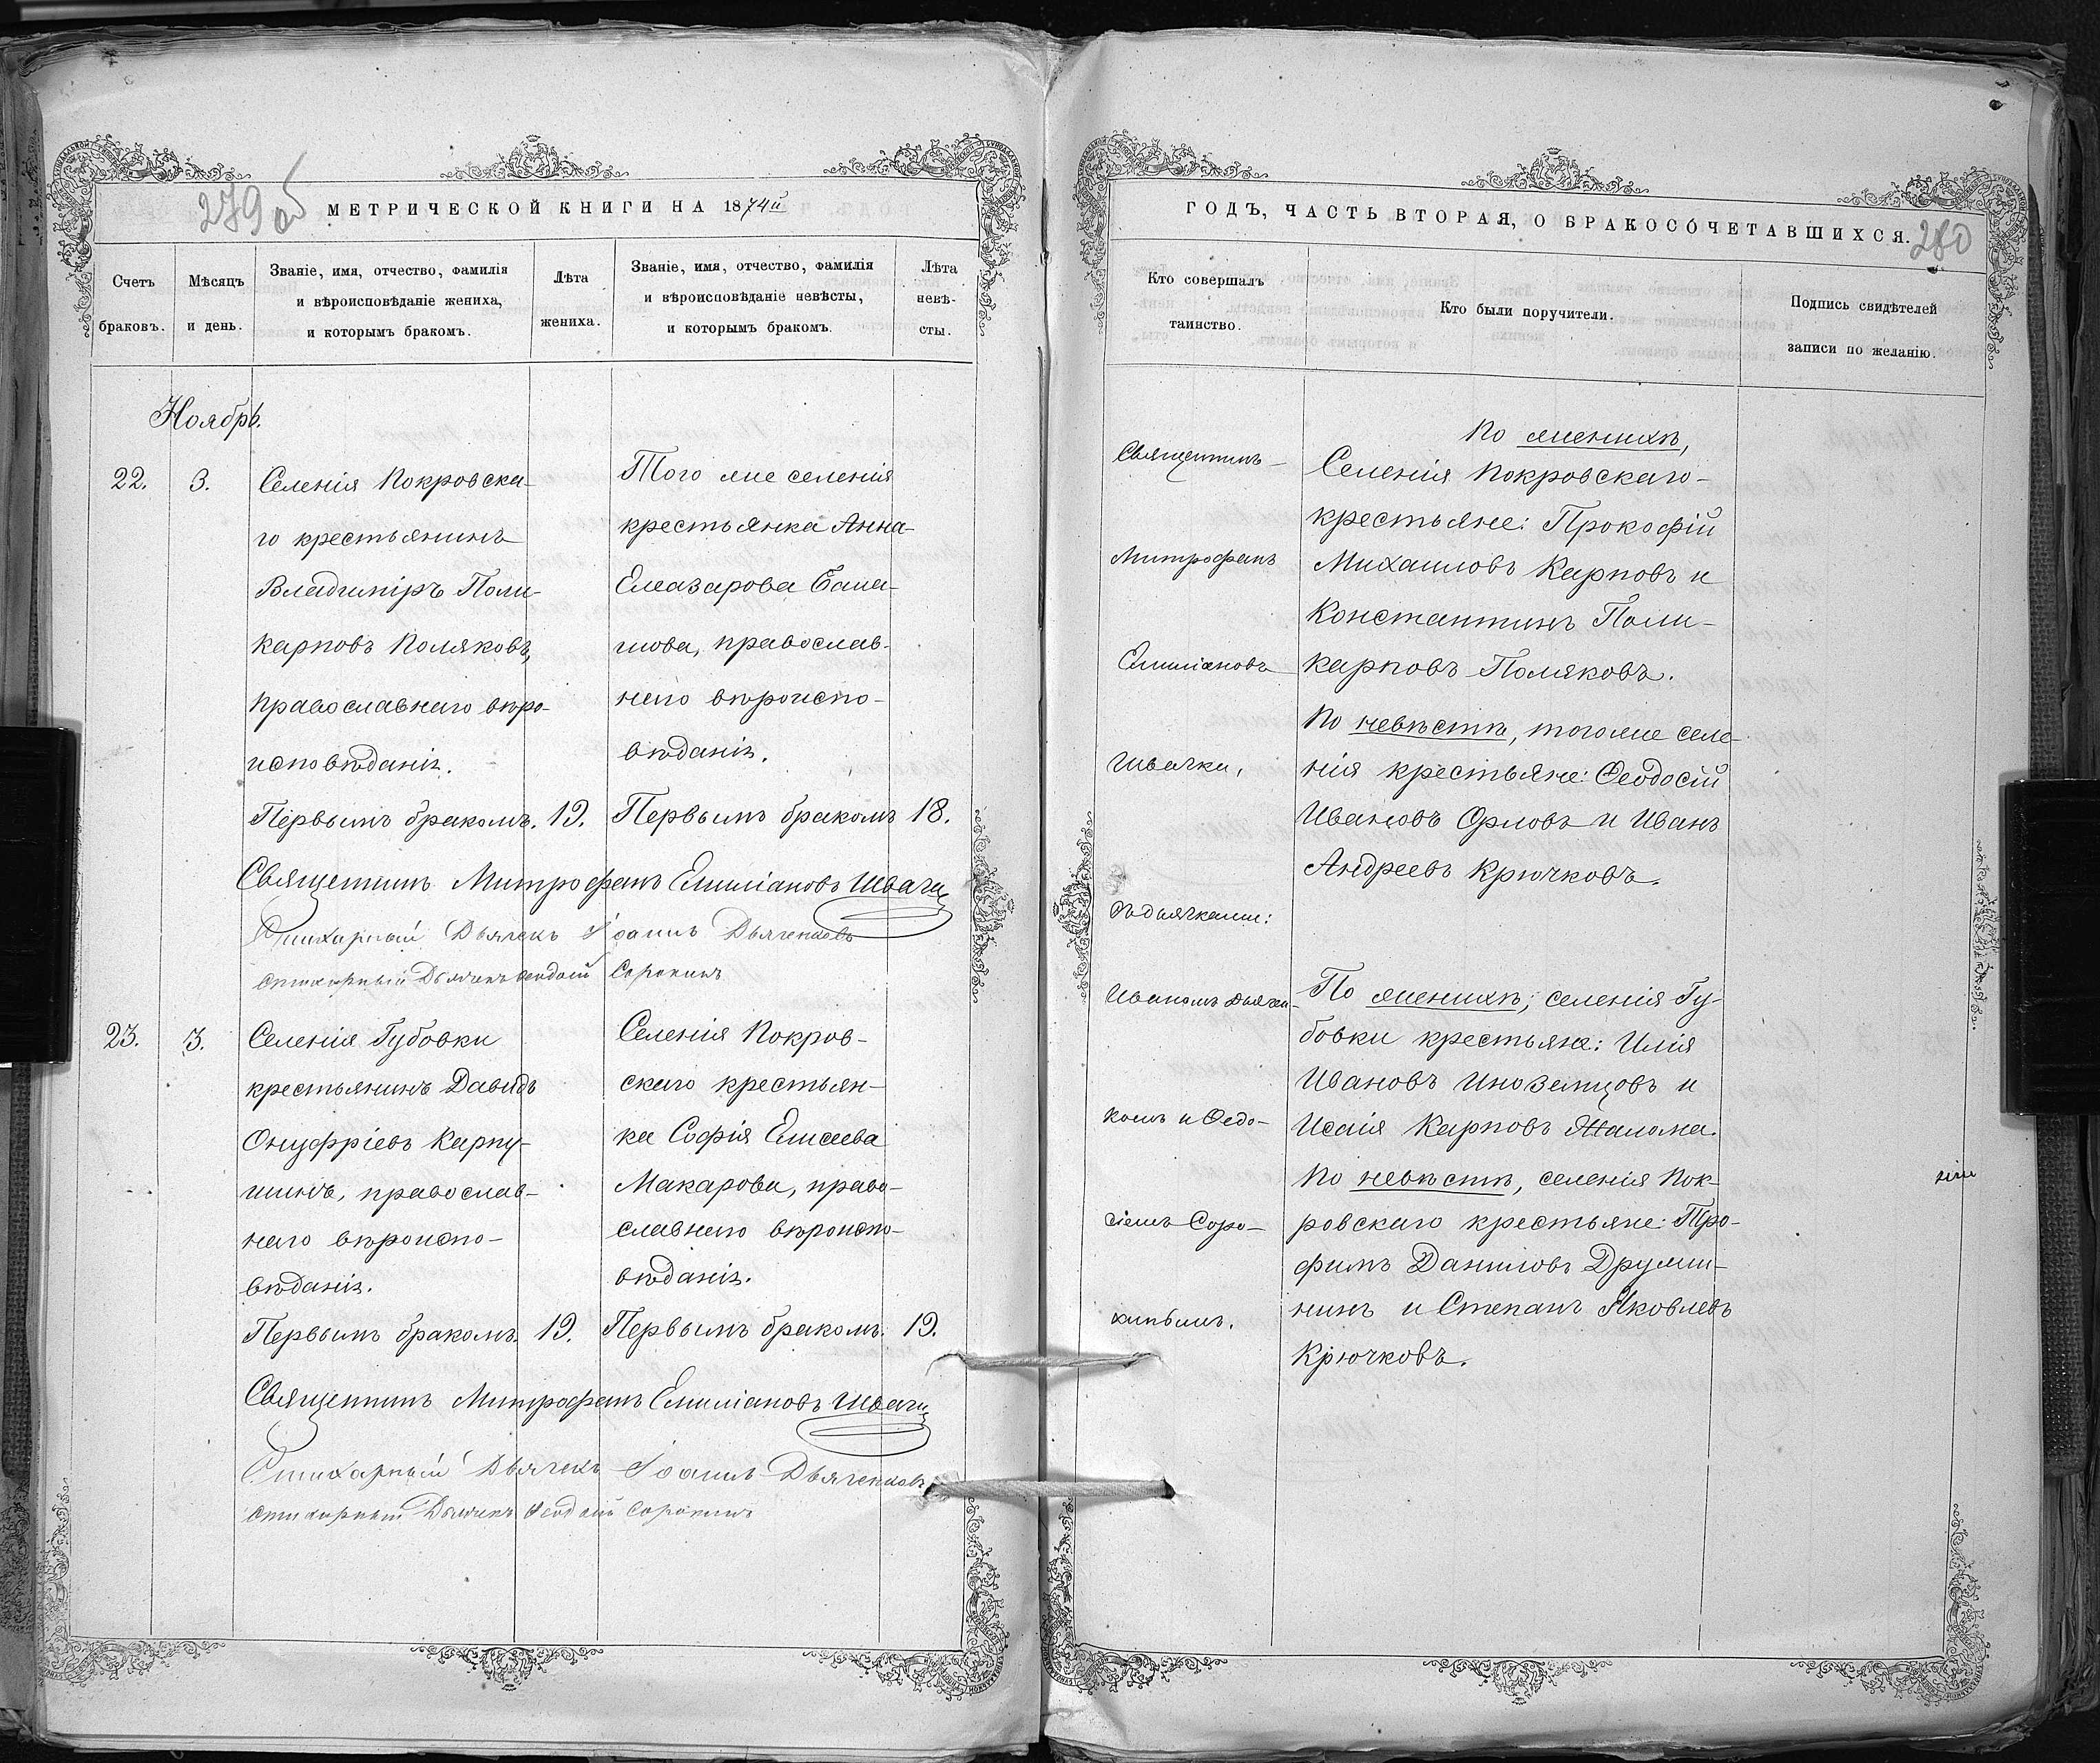 279 об
МЕТРИЧЕСКОЙ КНИГИ НА 1874й
Счетъ браковъ.
Мѣсяцъ и день.
Званіе, имя, отчество, фамилія
и вѣроисповѣданіе жениха,
и которымъ бракомъ.
Лѣта
жениха.
Званіе, имя, отчество, фамилія
и вѣроисповѣданіе невѣсты,
и которымъ бракомъ.
Лѣта
невѣ-
сты.
Ноябрь.
22.
3.
Селенія Покровска-
го крестьянинъ
Владиміръ Поли-
карповъ Поляковъ,
православнаго вѣро-
исповѣданія.
Первымъ бракомъ.
19.
Того же селенія
крестьянка Анна
Елеазарова Бала-
шова, православ-
наго вѣроиспо-
вѣданія.
Первымъ бракомъ
18.
Священникъ Митрофанъ Емиліановъ Швачка
Стихарный Дьячекъ Іоаннъ Дьяченковъ
Стихарный Дьячекъ Феодосій Сорокинъ
23.
3.
Селенія Губовки
крестьянинъ Давидъ
Онуфріевъ Карпу-
шинъ, православ-
наго вѣроиспо-
вѣданія.
Первымъ бракомъ.
19.
Селенія Покров-
скаго крестьян-
ка Софія Елисеева
Макарова, право-
славнаго вѣроиспо-
вѣданія.
Первымъ бракомъ.
19.
Священникъ Митрофанъ Емиліановъ Швачка
Стихарный Дьячекъ Іоаннъ Дьяченковъ
Стихарный Дьячекъ Феодосій Сорокинъ
ГОДЪ, ЧАСТЬ ВТОРАЯ, О БРАКОСОЧЕТАВШИХСЯ.
280
Кто совершалъ
таинство.
Кто были поручители.
Подпись свидѣтелей
записи по желанію.
Священникъ
Митрофанъ
Емиліановъ
Швачка,
съ дьячками:
Иваномъ Дьячен-
комъ и Ѳедо-
сіемъ Соро-
кинымъ.
По женихѣ,
Селенія Покровскаго
крестьяне: Прокофій
Михаиловъ Карповъ и
Константинъ Поли-
карповъ Поляковъ.
По невѣстѣ, тогоже селе-
нія крестьяне: Ѳеодосій
Ивановъ Орловъ и Иванъ
Андреевъ Крючковъ.
По женихѣ; селенія Гу-
бовки крестьяне: Илія
Ивановъ Иноземцовъ и
Исаія Карповъ
По невѣстѣ, селенія Пок-
ровскаго крестьяне: Тро-
фимъ Даниловъ Дружи-
нинъ и Степанъ Яковлевъ
Крючковъ.